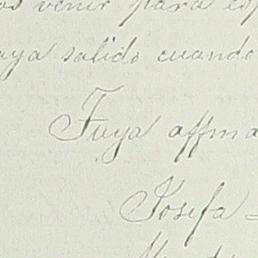 os venir para esp
aya salido cuando
Tuya affma
Josefa